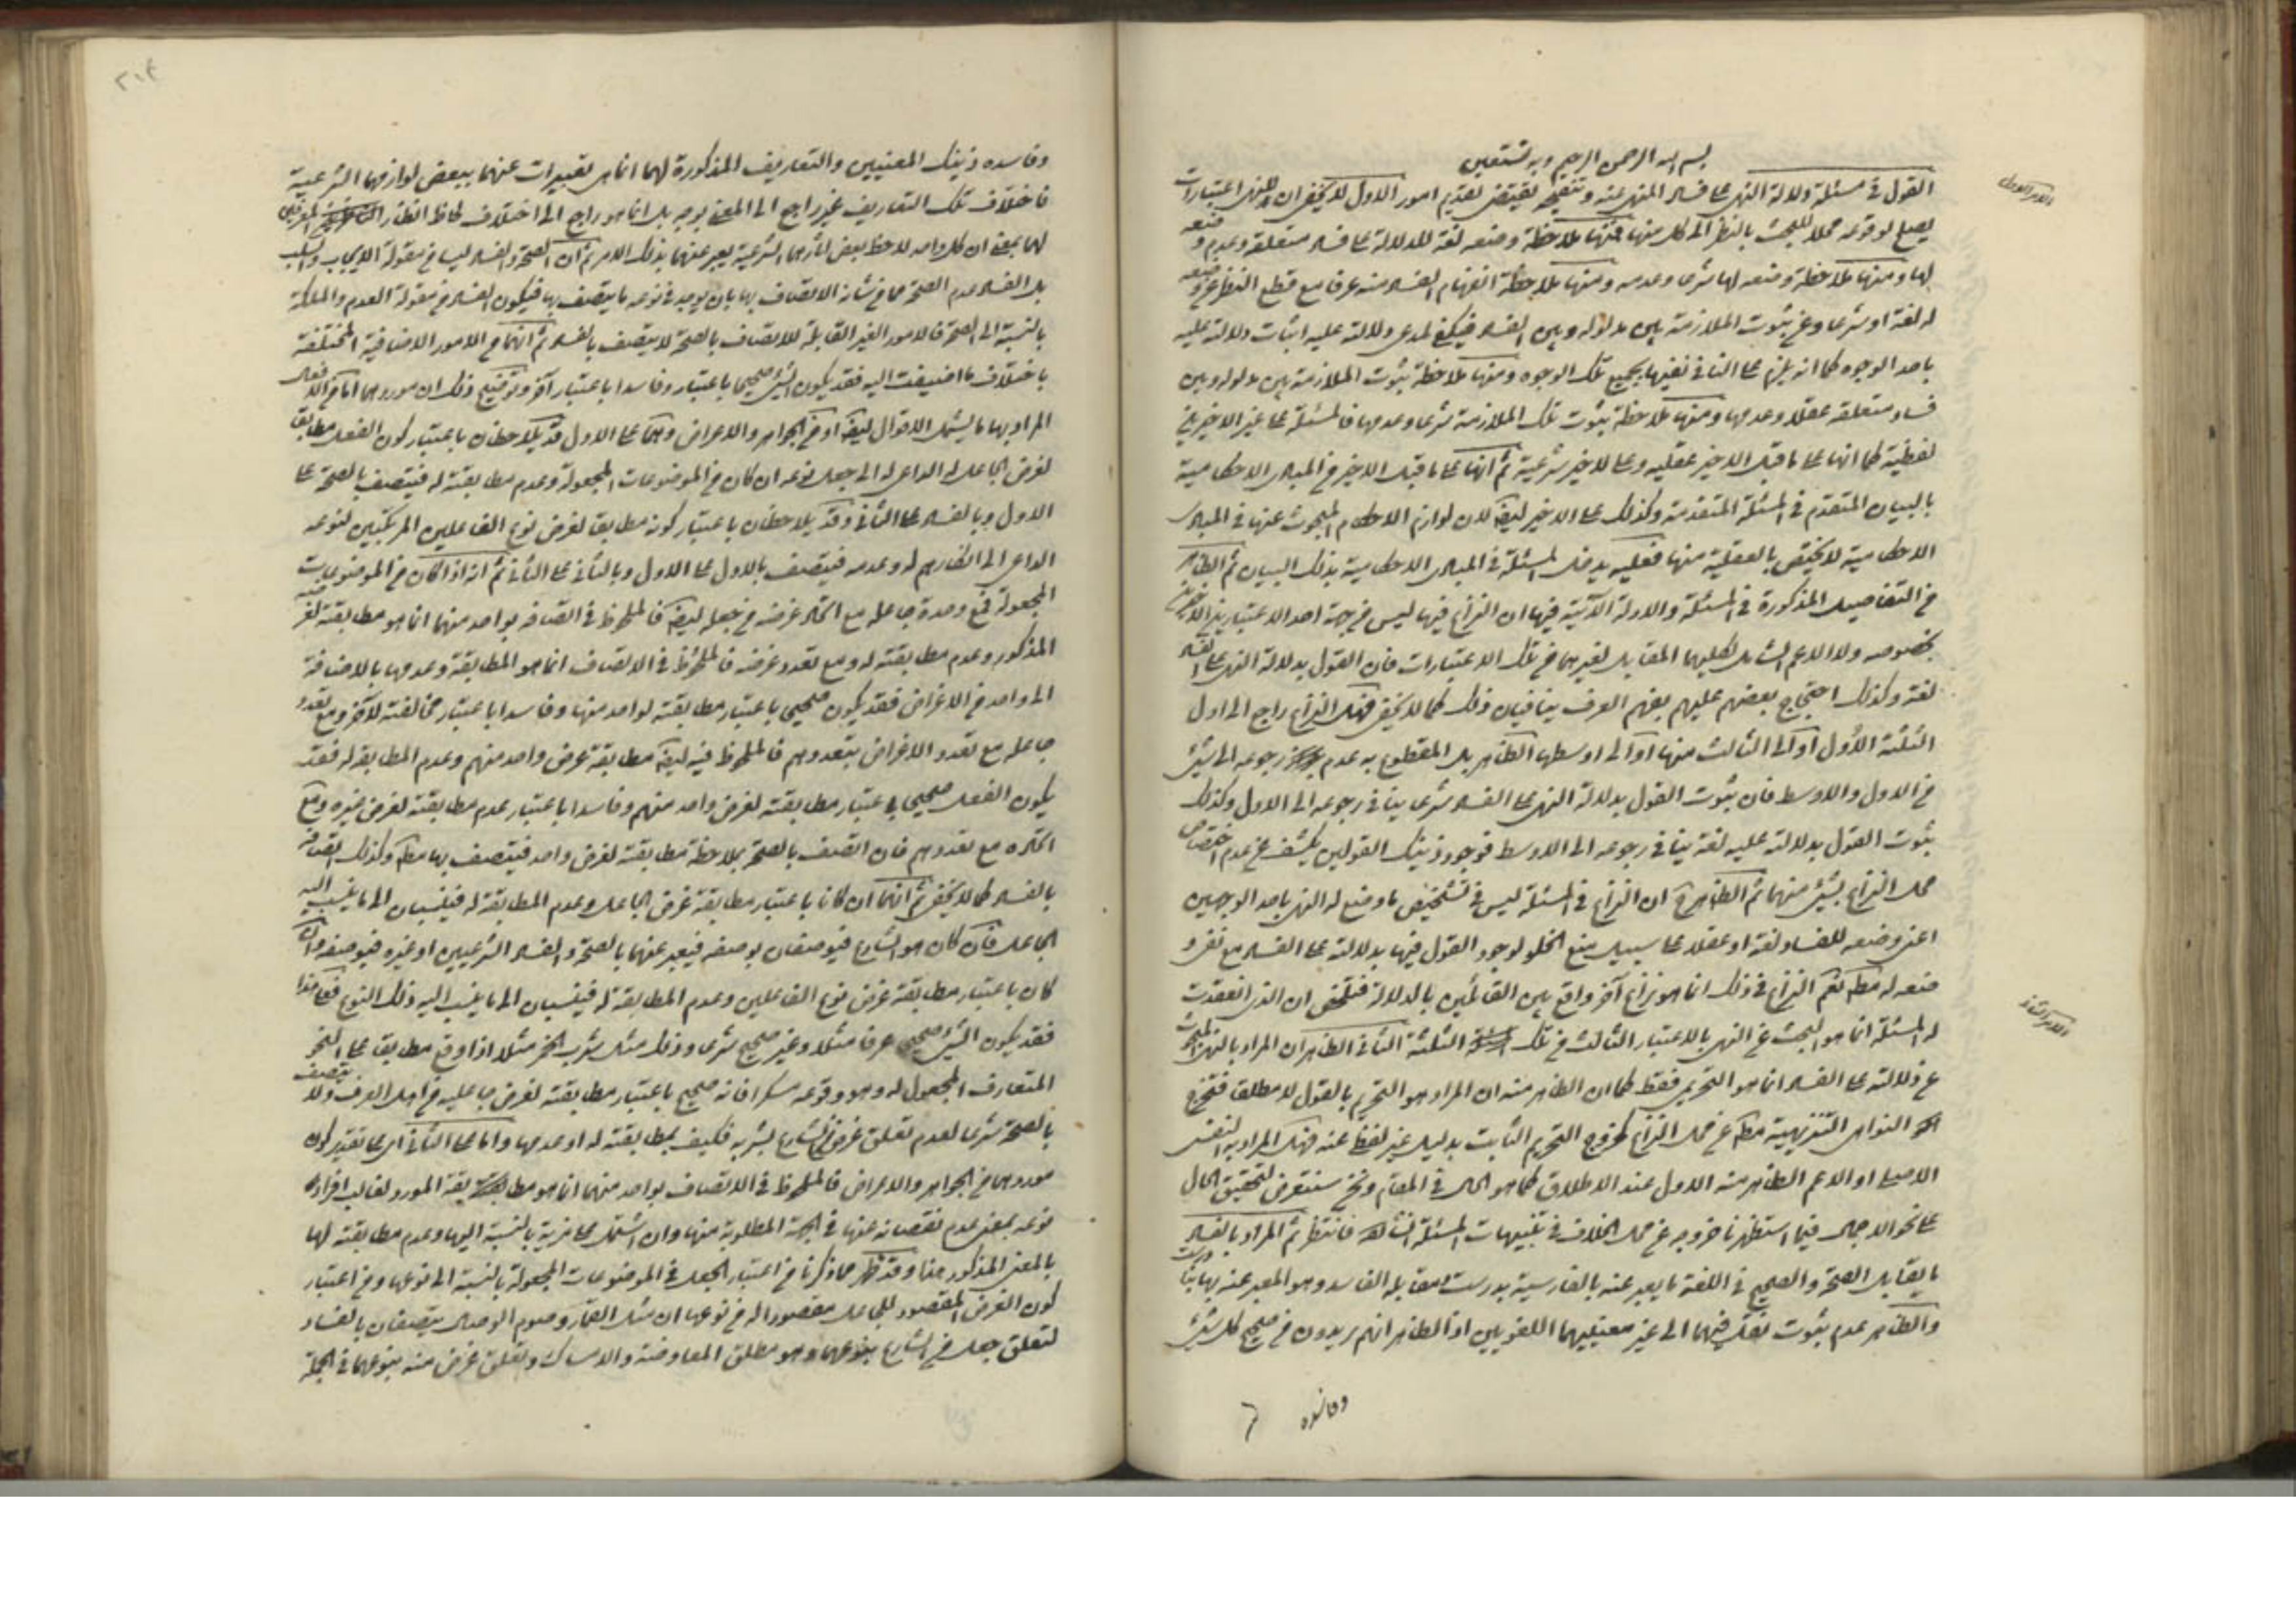 بسم الله الرحمن الرحيم وبه نستعين
الامر الاول
القول في مسئلة دلالة النهي على فساد المنهي عنه وتنقيحه يقتضي تقديم امور الاول لا يخفى ان للنهي اعتبارات
يصلح لوقوعه محلا للبحث بالنظر الى كل منها فمنها ملاحظة وضعه لغة للدلالة على فساد متعلقه وعدم وضعه
لها ومنها ملاحظة وضعه لها شرعا وعدمه ومنها ملاحظة انفهام الفساد منه عرفا مع قطع النظر عن وضعه
له لغة او شرعا وعن ثبوت الملازمة بين مدلوله وبين الفساد فيكفي لمدعي دلالته عليه اثبات دلالته عليه
باحد الوجوه كما انه يلزم على النافي نفيها بجميع تلك الوجوه ومنها ملاحظة ثبوت الملازمة بين مدلوله وبين
فساد متعلقه عقلا وعدمها ومنها ملاحظة ثبوت تلك الملازمة شرعا وعدمها فالمسئلة على غير الاخيرين
لفظية كما انها على ما قبل الاخير عقلية وعلى الاخير شرعية ثم انها على ما قبل الاخير من المبادي الاحكامية
بالبيان المتقدم في المسئلة المتقدمة وكذلك على الاخير ايضا لان لوازم الاحكام المبحوث عنها في المبادي
الاحكامية لا يختص بالعقلية منها فعليه يدخل المسئلة في المبادي الاحكامية بذلك البيان ثم الظاهر
من التفاصيل المذكورة في المسئلة والادلة الآتية فيها ان النزاع فيها ليس من جهة احد الاعتبارين الاخيرين
بخصوصه ولا الاعم الشامل لكليهما المقابل لغيرهما من تلك الاعتبارات فان القول بدلالة النهي على الفساد
لغة وكذلك احتجاج بعضهم عليهم بفهم العرف ينافيان ذلك كما لا يخفى فهل النزاع راجع الى اول
الثلثة الاول او الى الثالث منها او الى اوسطها الظاهر بل المقطوع به عدم رجوعه الى شيء
من الاول والاوسط فان ثبوت القول بدلالة النهي على الفساد شرعا ينافي رجوعه الى الاول وكذلك
ثبوت القول بدلالته عليه لغة ينافي رجوعه الى الاوسط فوجود ذينك القولين يكشف عن عدم اختصاص
محل النزاع بشيء منهما ثم الظاهر ان النزاع في المسئلة ليس في تشخيص ما وضع له النهي باحد الوجهين
اعني وضعه للفساد لغة او عقلا على سبيل منع الخلو لوجود القول فيها بدلالته على الفساد مع نفي و
ضعه له مطلقا نعم النزاع في ذلك انما هو نزاع آخر واقع بين القائلين بالدلالة فتلخص ان الذي انعقدت
له المسئلة انما هو البحث عن النهي بالاعتبار الثالث من تلك الثلثة الثاني الظاهر ان المراد بالنهي المبحوث
الامر الثاني
عن دلالته على الفساد انما هو التحريم فقط كما ان الظاهر منه ان المراد هو التحريم بالقول لا مطلقا فتخرج
النواهي التنزيهية مطلقا عن محل النزاع كخروج التحريم الثابت بدليل غير لفظي عنه فهل المراد به النفسي
الاصلي او الاعم الظاهر منه الاول عند الاطلاق كما هو الحال في المقام ونحن سنتعرض لتحقيق الحال
على نحو الاجمال فيما استظهرنا خروجه عن محل الخلاف في تنبيهات المسئلة فانتظر ثم المراد بالفساد
ما يقابل الصحة والصحيح في اللغة ما يعبر عنه بالفارسية بدرست ومقابله الفاسد وهو المعبر عنه بها بنا درست
والظاهر عدم ثبوت نقل فيهما الى غير معنييهما اللغويين اذ الظاهر انهم يريدون من صحيح كل شيء
وفاسده
وفاسده ذينك المعنيين والتعاريف المذكورة لهما انما هي تعبيرات عنهما ببعض لوازمهما الشرعية
فاختلاف تلك التعاريف غير راجع الى المعنى بوجه بل انما هو راجع الى اختلاف لحاظ انظار المعرفين
لهما بمعنى ان كل واحد لاحظ بعض آثارهما الشرعية يعبر عنهما بذلك الامر ثم ان الصحة والفساد ليسا من مقولة الايجاب والسلب
بل الفساد عدم الصحة مما من شأنه الاتصاف بها بان يوجد في نوعه ما يتصف بها فيكون الفساد من مقولة العدم والملكة
بالنسبة الى الصحة فالامور الغير القابلة للاتصاف بالصحة لا يتصف بالفساد ثم انهما من الامور الاضافية المختلفة
باختلاف ما اضيفت اليه فقد يكون الشيء صحيحا باعتبار وفاسدا باعتبار آخر وتوضيح ذلك ان موردهما اما من الافعال
المراد بها ما يشمل الاقوال ايضا او من الجواهر والاعراض وهما على الاول قد يلاحظان باعتبار كون الفعل مطابقا
لغرض الجاعل له الداعي له الى جعل نوعه ان كان من الموضوعات المجعولة وعدم مطابقته له فيتصف بالصحة على
الاول وبالفساد على الثاني وقد يلاحظان باعتبار كونه مطابقا لغرض نوع الفاعلين المرتكبين لنوعه
الداعي الى اختيارهم له وعدمه فيتصف بالاول على الاول وبالثاني على الثاني ثم انه اذا كان من الموضوعات
المجعولة فمع وحدة جاعله مع اتحاد غرضه من جعله ايضا فالملحوظ في اتصافه بواحد منهما انما هو مطابقته لغرضه
المذكور وعدم مطابقته له ومع تعدد غرضه فالملحوظ في الاتصاف انما هو المطابقة وعدمها بالاضافة
الى واحد من الاغراض فقد يكون صحيحا باعتبار مطابقته لواحد منها وفاسدا باعتبار مخالفته للآخر ومع تعدد
جاعله مع تعدد الاغراض بتعددهم فالملحوظ فيه ايضا مطابقة غرض واحد منهم وعدم المطابقة له فقد
يكون الفعل صحيحا باعتبار مطابقته لغرض واحد منهم وفاسدا باعتبار عدم مطابقته لغرض غيره ومع
اتحاده مع تعددهم فان اتصف بالصحة بملاحظة مطابقته لغرض واحد فيتصف بها مطلقا وكذلك اتصافه
بالفساد كما لا يخفى ثم انهما ان كانا باعتبار مطابقة غرض الجاعل وعدم المطابقة له فينسبان الى ما ينسب اليه
الجاعل فان كان هو الشارع فيوصفان بوصفه فيعبر عنهما بالصحة والفساد الشرعيين او غيره فبوصفه وان
كان باعتبار مطابقة غرض نوع الفاعلين وعدم المطابقة له فينسبان الى ما ينسب اليه ذلك النوع فعلى هذا
فقد يكون الشيء صحيحا عرفا مثلا وغير صحيح شرعا وذلك مثل شرب الخمر مثلا اذا وقع مطابقا على النحو
المتعارف المجعول له وهو وقوعه مسكرا فانه صحيح باعتبار مطابقته لغرض جاعليه من اهل العرف ولا يتصف
بالصحة شرعا لعدم تعلق غرض الشارع بشربه فكيف بمطابقته له او عدمها واما على الثاني اي على تقدير كون
موردهما من الجواهر والاعراض فالملحوظ في الاتصاف بواحد منهما انما هو مطابقة المورد لغالب افراد
نوعه بمعنى عدم نقصانه عنها في الجهة المطلوبة منها وان اشتمل على مزية بالنسبة اليها وعدم مطابقته لها
بالمعنى المذكور هنا وقد ظهر مما ذكرنا من اعتبار الجعل في الموضوعات المجعولة بالنسبة الى نوعها ومن اعتبار
كون الغرض المقصود للجاعل مقصودا له من نوعها ان مثل القمار وصوم الوصال يتصفان بالفساد
لتعلق جعل من الشارع بنوعهما وهو مطلق المعاوضة والامساك وتعلق غرض منه بنوعهما في الجملة